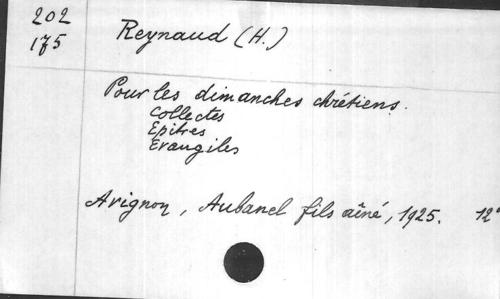 202
175
Reynaud (H.)
Pour les dimanches chrétiens.
Collectes
Epitres
Evangiles
Avignon, Aubanel fils aîné, 1925. 12°